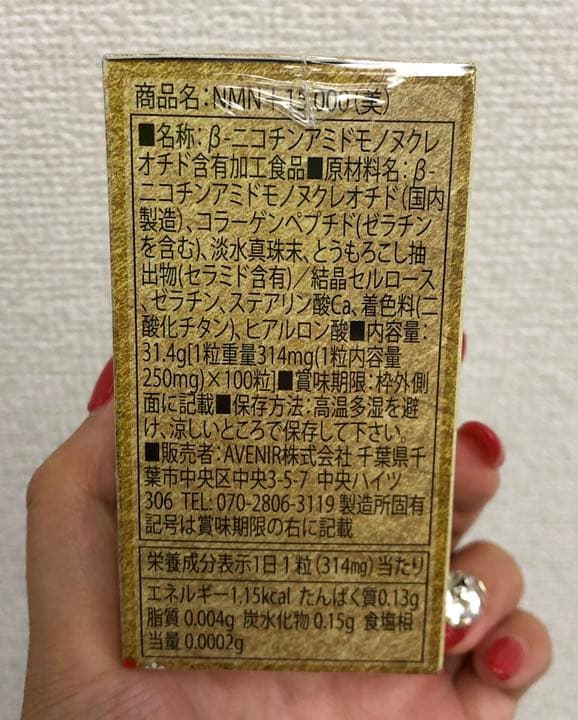 商品名：NMN＋15,000(美)
■名称：β-ニコチンアミドモノヌクレ
オチド含有加工食品■原材料名：β-
ニコチンアミドモノヌクレオチド(国内
製造)、コラーゲンペプチド(ゼラチン
を含む)、淡水真珠末、とうもろこし抽
出物(セラミド含有)／結晶セルロース
、ゼラチン、ステアリン酸Ca、着色料(二
酸化チタン)、ヒアルロン酸■内容量：
31.4g[1粒重量314mg(1粒内容量
250mg)×100粒]■賞味期限：枠外側
面に記載■保存方法：高温多湿を避
け、涼しいところで保存して下さい。
■販売者：AVENIR株式会社 千葉県千
葉市中央区中央3-5-7 中央ハイツ
306 TEL: 070-2806-3119 製造所固有
記号は賞味期限の右に記載
栄養成分表示1日1粒(314mg)当たり
エネルギー1,15kcal たんぱく質0.13g
脂質 0.004g 炭水化物 0.15g 食塩相
当量 0.0002g